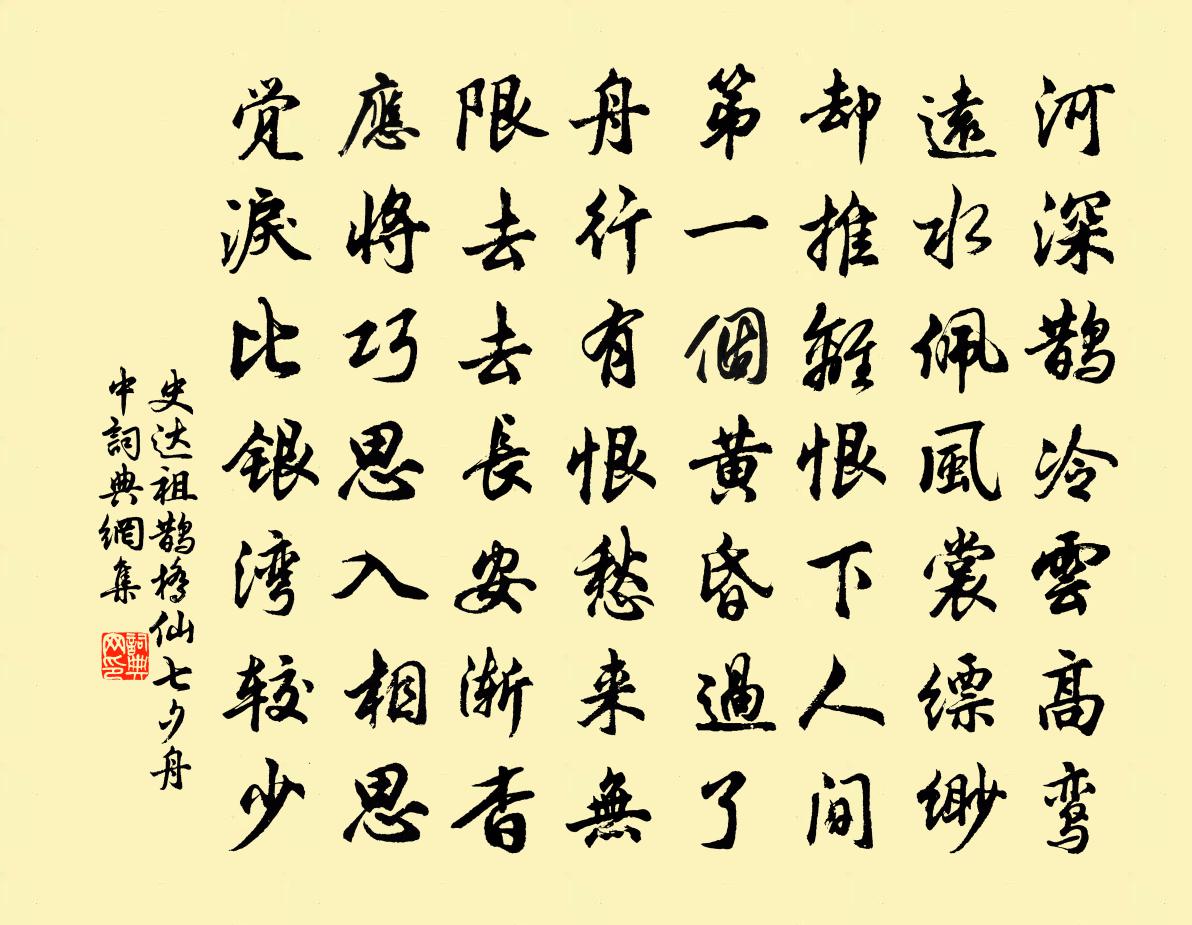 河深鹊冷雲高鸾
遠水佩風裳縹缈
却推離恨下人间
第一個黄昏過了
舟行有恨愁来無
限去去長安渐杳
應將巧思入相思
觉淚比銀湾较少
史达祖鹊橋仙七夕舟
中詞典網集
詞典网印